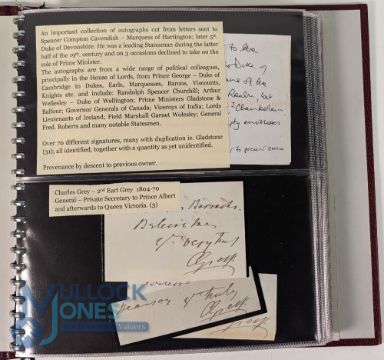 An important collection of autographs cut from letters sent to
Spencer Compton Cavendish – Marquess of Hartington; later 8th
Duke of Devonshire. He was a leading Statesman during the latter
half of the 19th. century and on 3 occasions declined to take on the
role of Prime Minister.
The autographs are from a wide range of political colleagues,
principally in the House of Lords, from Prince George – Duke of
Cambridge to Dukes, Earls, Marquesses, Barons, Viscounts,
Knights etc. and include: Randolph Spencer Churchill; Arthur
Wellesley – Duke of Wellington; Prime Ministers Gladstone &
Balfour; Governor Generals of Canada; Viceroys of India; Lords
Lieutenants of Ireland; Field Marshall Garnet Wolseley; General
Fred. Roberts and many notable Statesmen.
Over 70 different signatures, many with duplication ie. Gladstone
(31); all identified; together with a quantity as yet unidentified.
Preverance by descent to previous owner.
to be
Duke of
Charles Grey – 2nd Earl Grey 1804-70
General – Private Secretary to Prince Albert
and afterwards to Queen Victoria. (3)
Believe me
CGrey
truly
CGrey
MULLOCK
JONES
Valuers